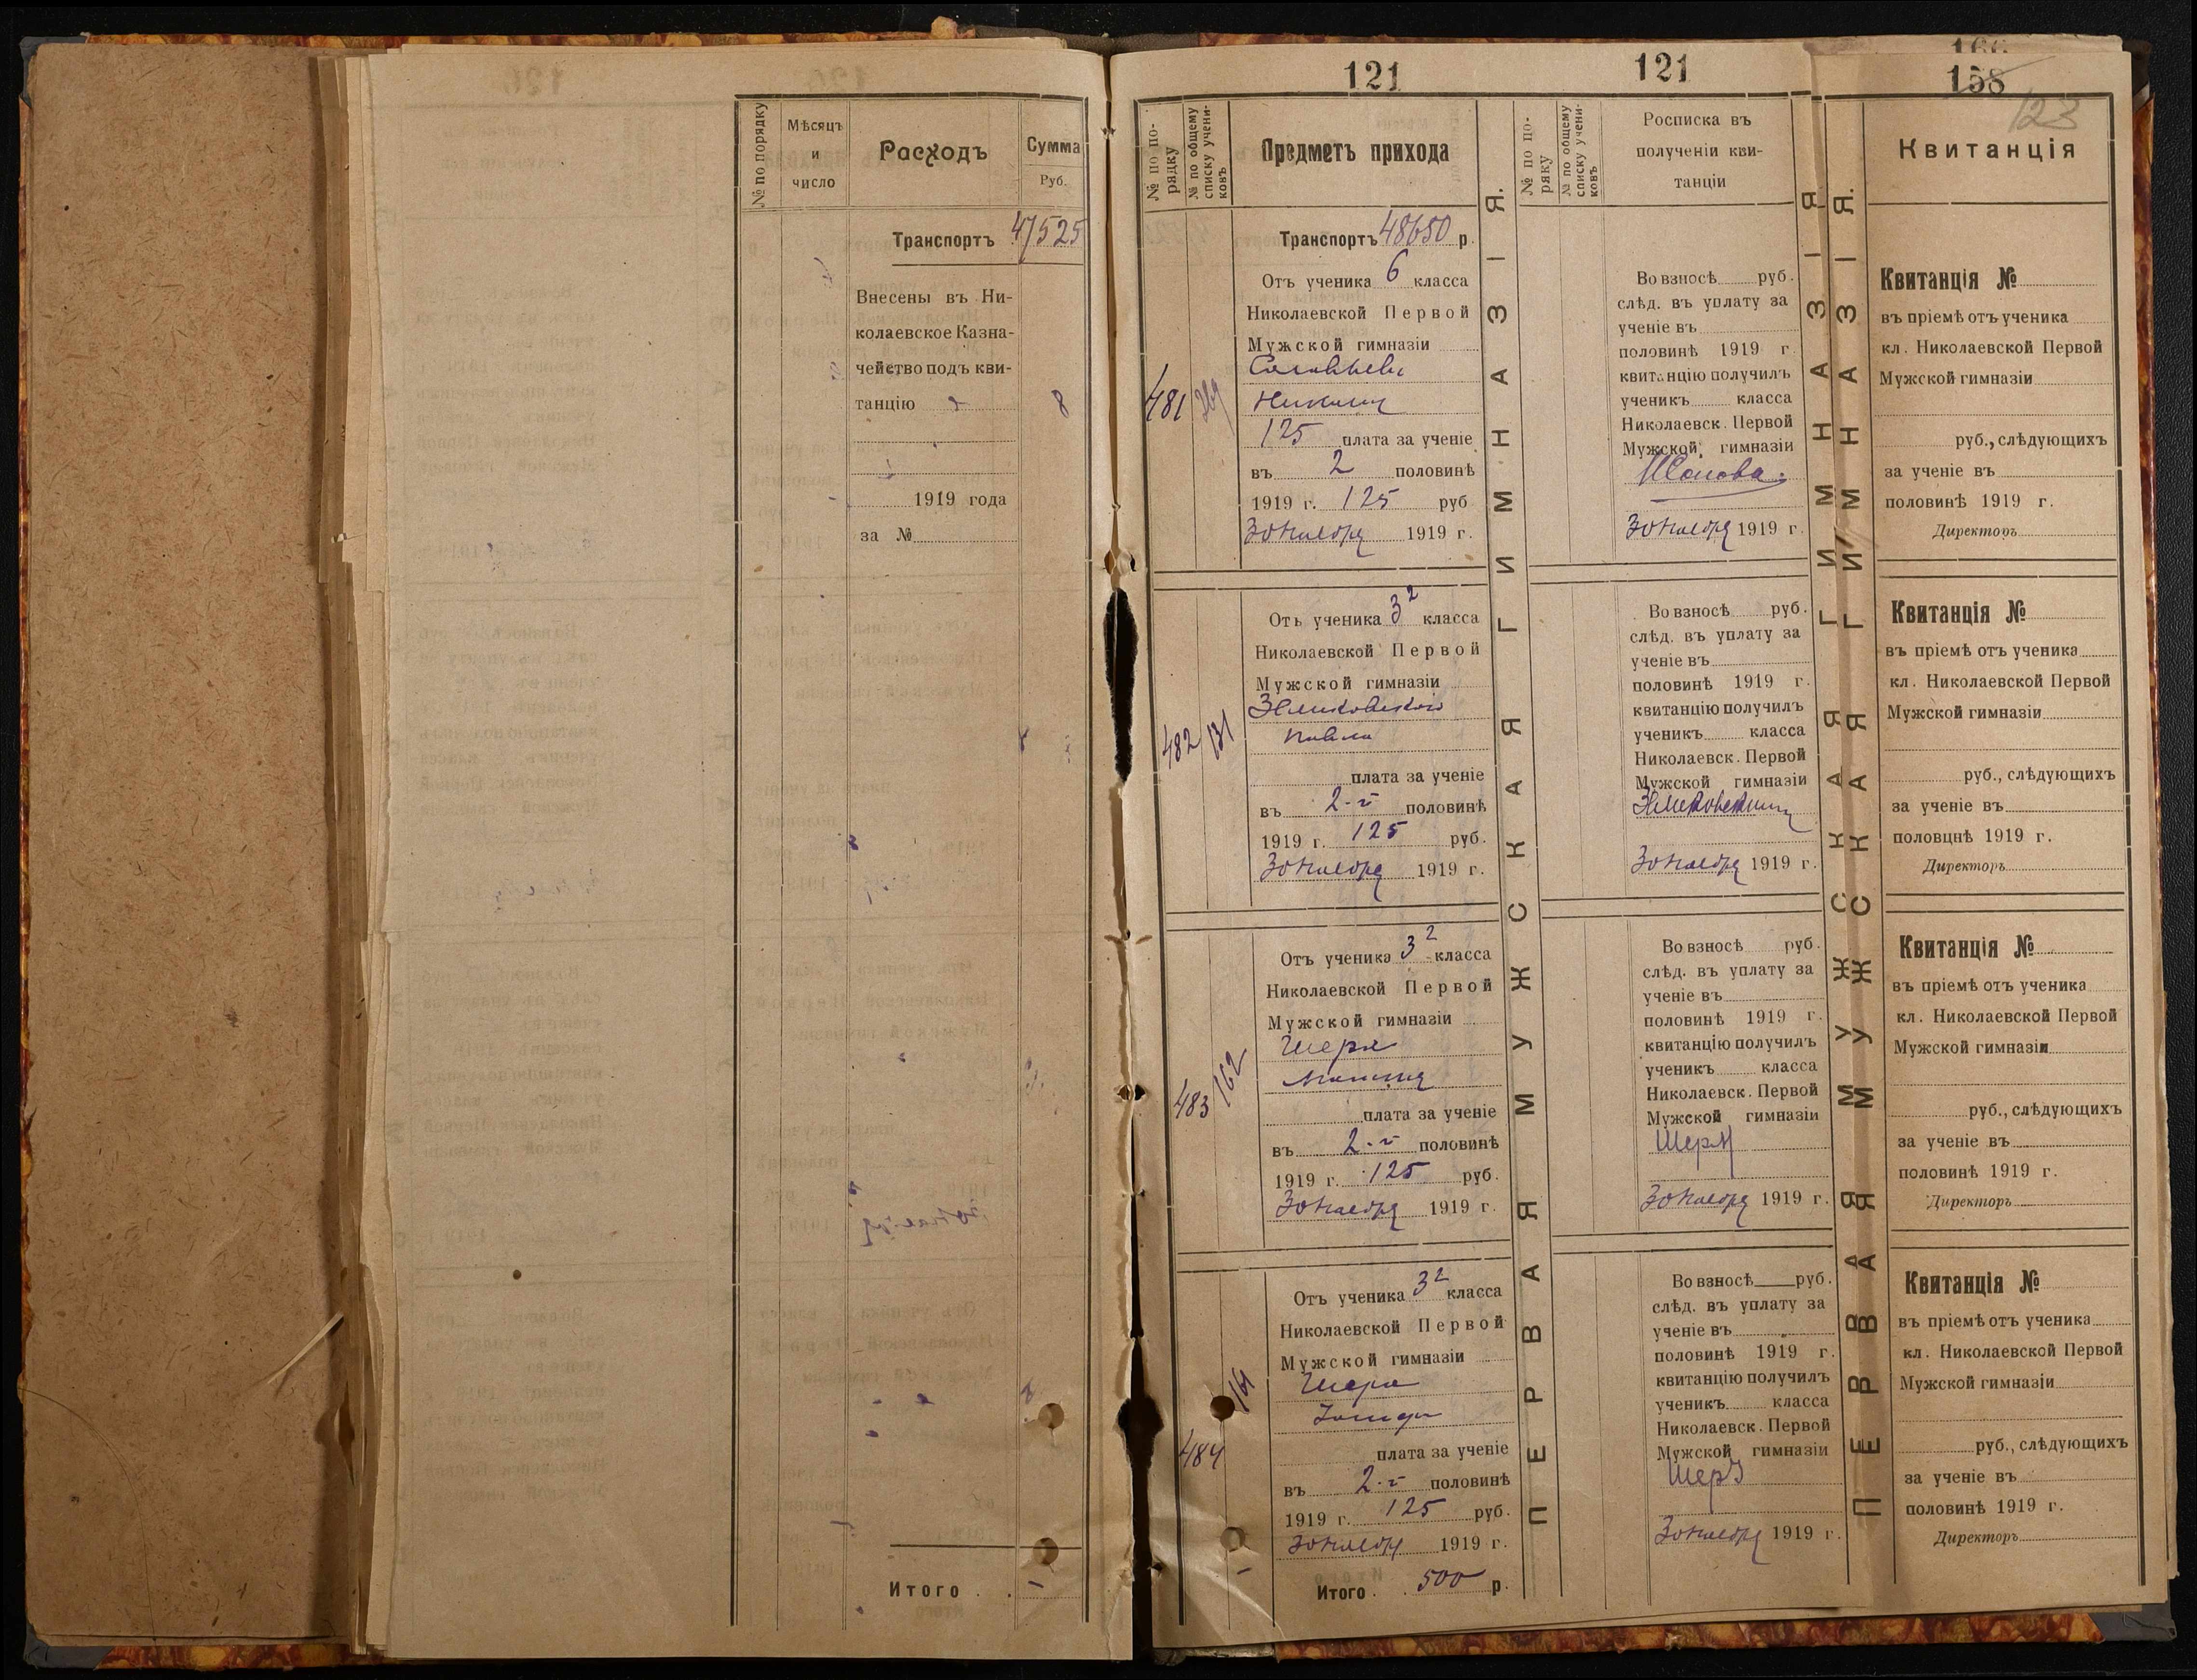 № по порядку
Мѣсяцъ
и
число
Расходъ
Сумма
Руб.
Транспортъ 47525
Внесены въ Ни-
колаевское Казна-
чейство подъ кви-
танцію
1919 года
за №
Итого . .
121
№ по по-
рядку
№ по общему
списку учени-
ковъ
Предметъ прихода
Транспортъ 48650 р.
481
Отъ ученика 6 класса
Николаевской Первой
Мужской гимназіи
125 плата за ученіе
въ 2 половинѣ
1919 г. 125 руб
30 ноября 1919 г.
482 131
Отъ ученика 3² класса
Николаевской Первой
Мужской гимназіи
Павла
плата за ученіе
въ 2-й половинѣ
1919 г. 125 руб.
30 ноября 1919 г.
483 162
Отъ ученика 3² класса
Николаевской Первой
Мужской гимназіи
Шера
плата за ученіе
въ 2-й половинѣ
1919 г. 125 руб.
30 ноября 1919 г.
484 161
Отъ ученика 3² класса
Николаевской Первой
Мужской гимназіи
Шера
плата за ученіе
въ 2-й половинѣ
1919 г. 125 руб.
30 ноября 1919 г.
Итого . . 500 р.
ПЕРВАЯ МУЖСКАЯ ГИМНАЗІЯ.
121
№ по по-
ряку
№ по общему
списку учени-
ковъ
Росписка въ
полученіи кви-
танціи
Во взносѣ руб.
слѣд. въ уплату за
ученіе въ
половинѣ 1919 г.
квитанцію получилъ
ученикъ класса
Николаевск. Первой
Мужской гимназіи
30 ноября 1919 г.
Во взносѣ руб.
слѣд. въ уплату за
ученіе въ
половинѣ 1919 г.
квитанцію получилъ
ученикъ класса
Николаевск. Первой
Мужской гимназіи
30 ноября 1919 г.
Во взносѣ руб.
слѣд. въ уплату за
ученіе въ
половинѣ 1919 г.
квитанцію получилъ
ученикъ класса
Николаевск. Первой
Мужской гимназіи
Шеръ
30 ноября 1919 г.
Во взносѣ руб.
слѣд. въ уплату за
ученіе въ
половинѣ 1919 г.
квитанцію получилъ
ученикъ класса
Николаевск. Первой
Мужской гимназіи
Шеръ
30 ноября 1919 г.
ПЕРВАЯ МУЖСКАЯ ГИМНАЗІЯ
ПЕРВАЯ МУЖСКАЯ ГИМНАЗІЯ.
158
123
Квитанція
Квитанція №
въ пріемѣ отъ ученика
кл. Николаевской Первой
Мужской гимназіи
руб., слѣдующихъ
за ученіе въ
половинѣ 1919 г.
Директоръ
Квитанція №
въ пріемѣ отъ ученика
кл. Николаевской Первой
Мужской гимназіи
руб., слѣдующихъ
за ученіе въ
половцнѣ 1919 г.
Директоръ
Квитанція №
въ пріемѣ отъ ученика
кл. Николаевской Первой
Мужской гимназіи
руб., слѣдующихъ
за ученіе въ
половинѣ 1919 г.
Директоръ
Квитанція №
въ пріемѣ отъ ученика
кл. Николаевской Первой
Мужской гимназіи
руб., слѣдующихъ
за ученіе въ
половинѣ 1919 г.
Директоръ